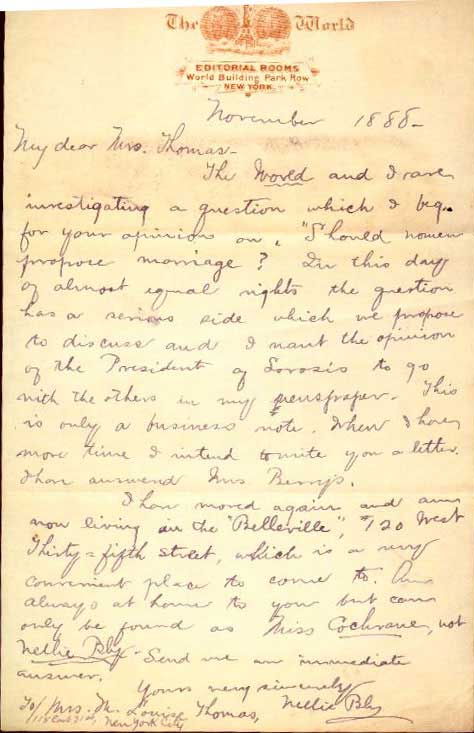 The World
EDITORIAL ROOMS
World Building Park Row
NEW YORK.
November 1888-
My dear Mrs. Thomas-
The World and I are
investigating a question which I beg
for your opinion on, "Should women
propose marriage? In this day
of almost equal rights the question
has a serious side which we propose
to discuss and I want the opinion
of the President of Sorosis to go
with the others in my newspaper. This
is only a business note. When I have
more time I intend to write you a letter.
I have answered Mrs Berry's.
I have moved again, and am
now living in the "Belleville", 120 West
Thirty=fifth street, which is a very
convenient place to come to. Am
always at home to you but can
only be found as Miss Cochrane, not
Nellie Bly- Send me an immediate
answer.
Yours very sincerely
Nellie Bly
To/ Mrs. M. Louise Thomas,
New York City